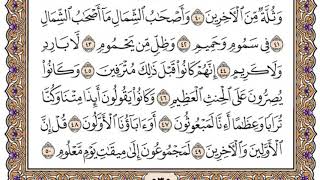 وَثُلَّةٌ مِّنَ ٱلْءَاخِرِينَ ٤٠ وَأَصْحَٰبُ ٱلشِّمَالِ مَآ أَصْحَٰبُ ٱلشِّمَالِ
٤١ فِى سَمُومٍ وَحَمِيمٍ ٤٢ وَظِلٍّ مِّن يَحْمُومٍ ٤٣ لَّا بَارِدٍ
وَلَا كَرِيمٍ ٤٤ إِنَّهُمْ كَانُوا۟ قَبْلَ ذَٰلِكَ مُتْرَفِينَ ٤٥ وَكَانُوا۟
يُصِرُّونَ عَلَى ٱلْحِنثِ ٱلْعَظِيمِ ٤٦ وَكَانُوا۟ يَقُولُونَ أَئِذَا مِتْنَا وَكُنَّا
تُرَابًا وَعِظَٰمًا أَءِنَّا لَمَبْعُوثُونَ ٤٧ أَوَءَابَآؤُنَا ٱلْأَوَّلُونَ ٤٨ قُلْ إِنَّ
ٱلْأَوَّلِينَ وَٱلْءَاخِرِينَ ٤٩ لَمَجْمُوعُونَ إِلَىٰ مِيقَٰتِ يَوْمٍ مَّعْلُومٍ ٥٠